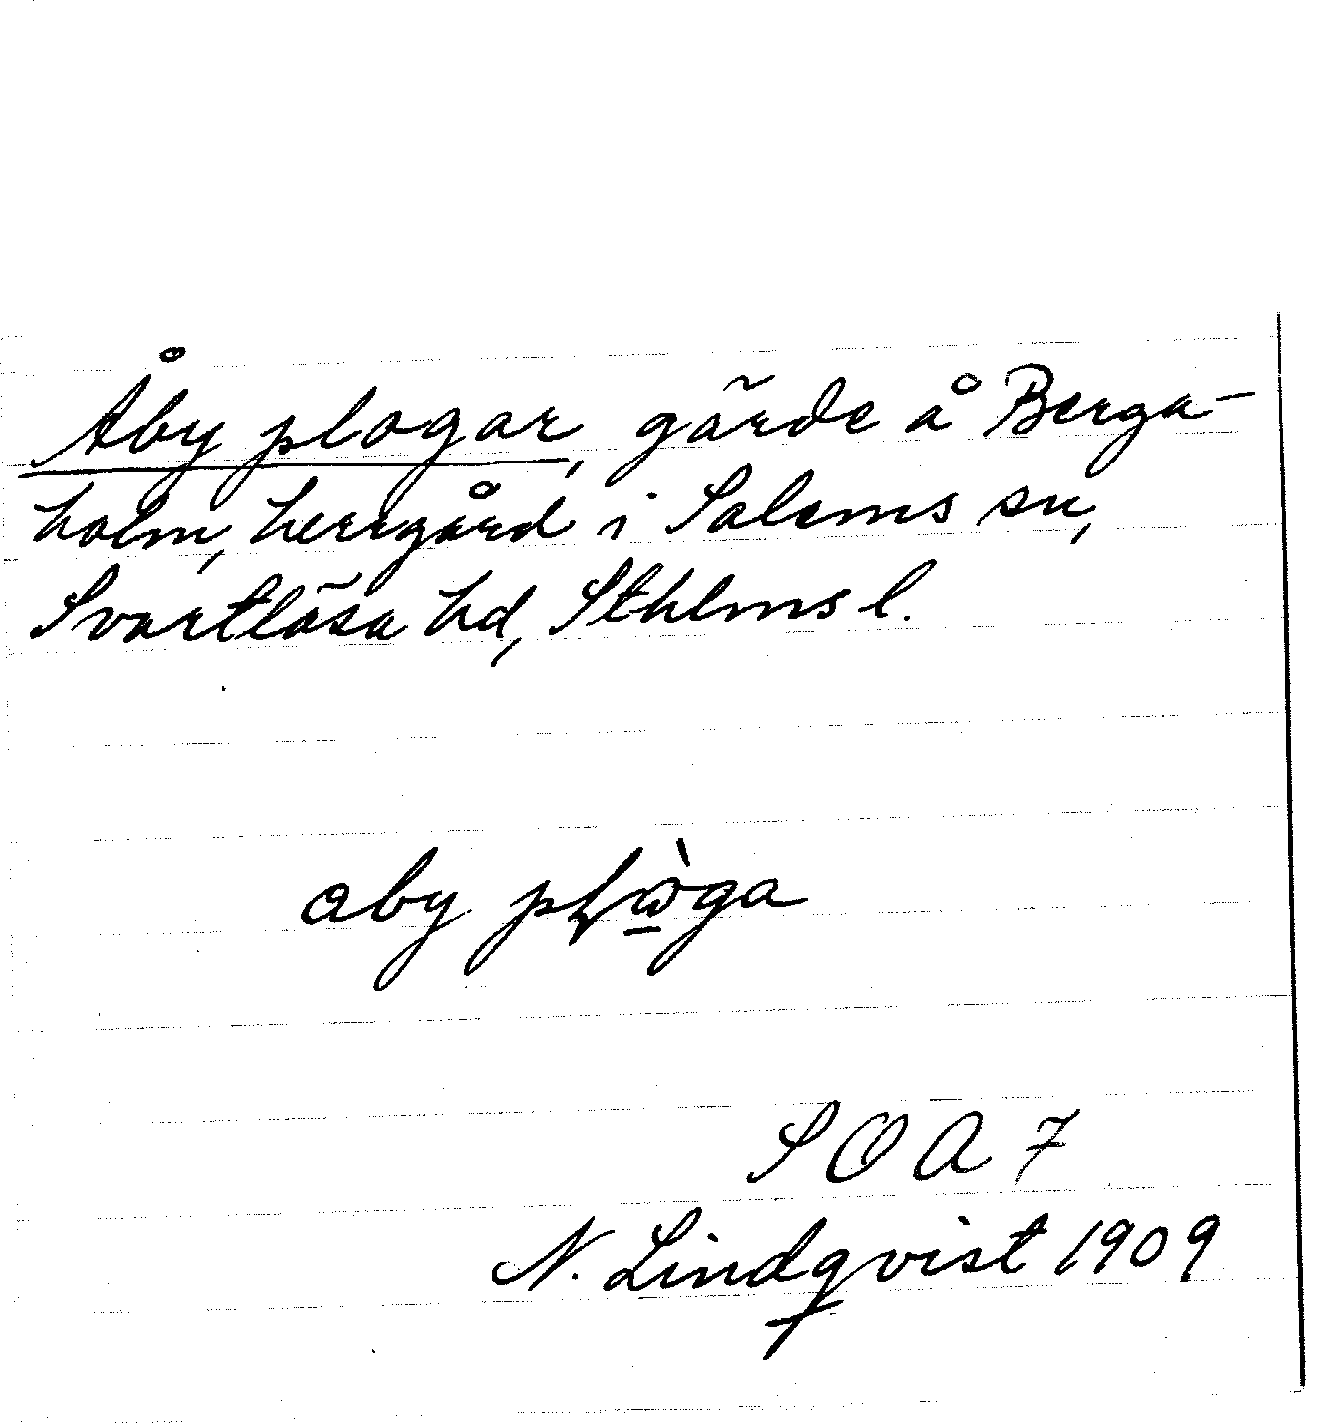 Åby plogar, gärde å Berga-
holm, herrgård i Salems sn,
Svartlösa hd, Sthlms l.
aby
S O A 7
N. Lindqvist 1909